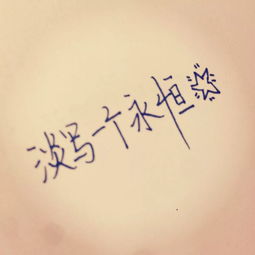 淡写一个永恒